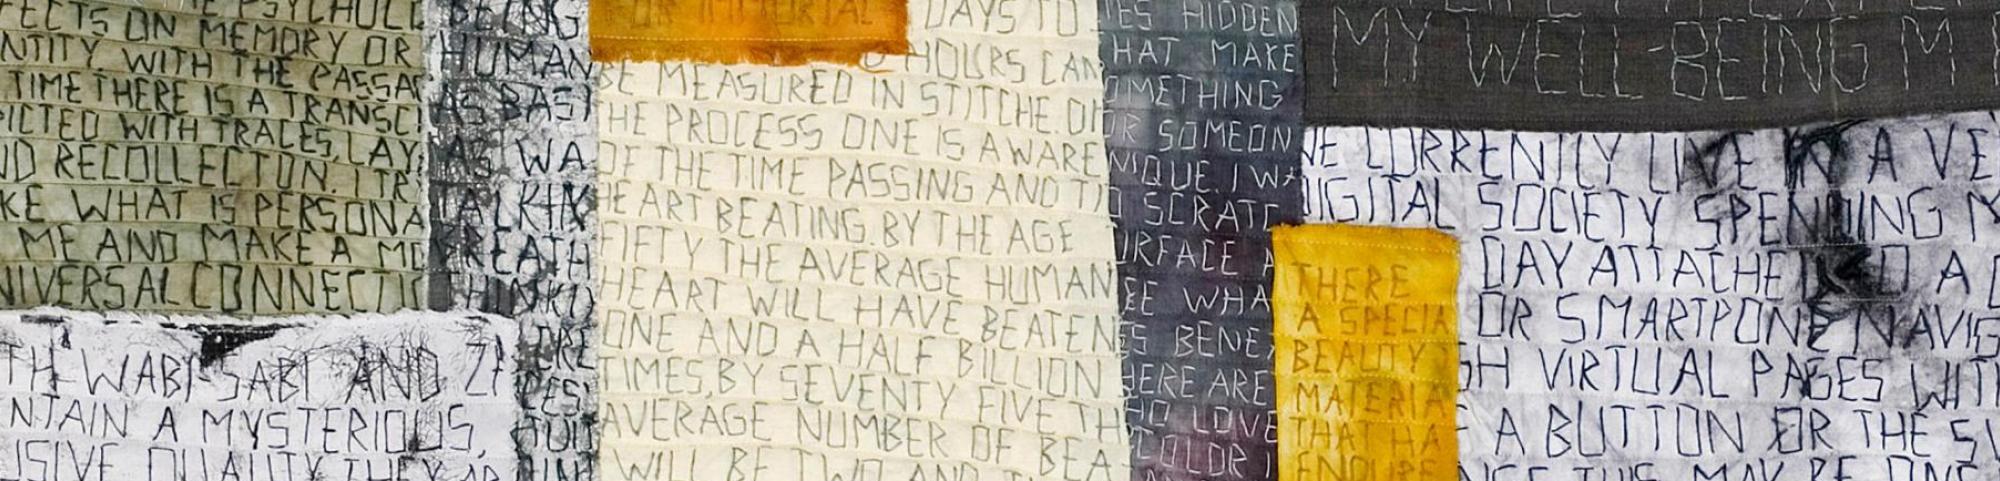 PSYCHOL
FECTS ON MEMORY OR
NTITY. WITH THE PASSAG
TIME THERE IS A TRANSC
PICTED WITH TRACES, LAY
ND RECOLLECTON. I TR
KE WHAT IS PERSONA
ME AND MAKE A MO
NIVERSAL CONNECTI
TH WABI-SABI AND ZE
NTAIN A MYSTERIOUS,
USIVE QUALITY THEY AP
BEING
HUMAN
AS BASI
AS WA
TALKIN
BREATH
THINKI
FOR IMMORTAL
DAYS TO
HOURS CAN
BE MEASURED IN STITCHE. OR
THE PROCESS ONE IS AWARE
OF THE TIME PASSING AND T
HEART BEATING. BY THE AGE
FIFTY THE AVERAGE HUMAN
HEART WILL HAVE BEATEN
ONE AND A HALF BILLION
TIMES, BY SEVENTY FIVE TH
AVERAGE NUMBER OF BEA
WILL BE TWO AND
ES HIDDEN
HAT MAKE
OMETHING
OR SOMEON
NIQUE. I WA
O SCRATC
URFACE A
EE WHA
S BENE
HERE ARE
HO LOVE
COLOR I
THERE
A SPECIA
BEAUTY
MATERIA
THAT HA
ENDURE
MY WELL-BEING M
WE CURRENTLY LIVE IN A VE
DIGITAL SOCIETY SPENDING M
DAY ATTACHED TO A C
OR SMARTPONE NAVIG
GH VIRTUAL PAGES WITH
F A BUTTON OR THE SW
NCE THIS MAY BE ONE